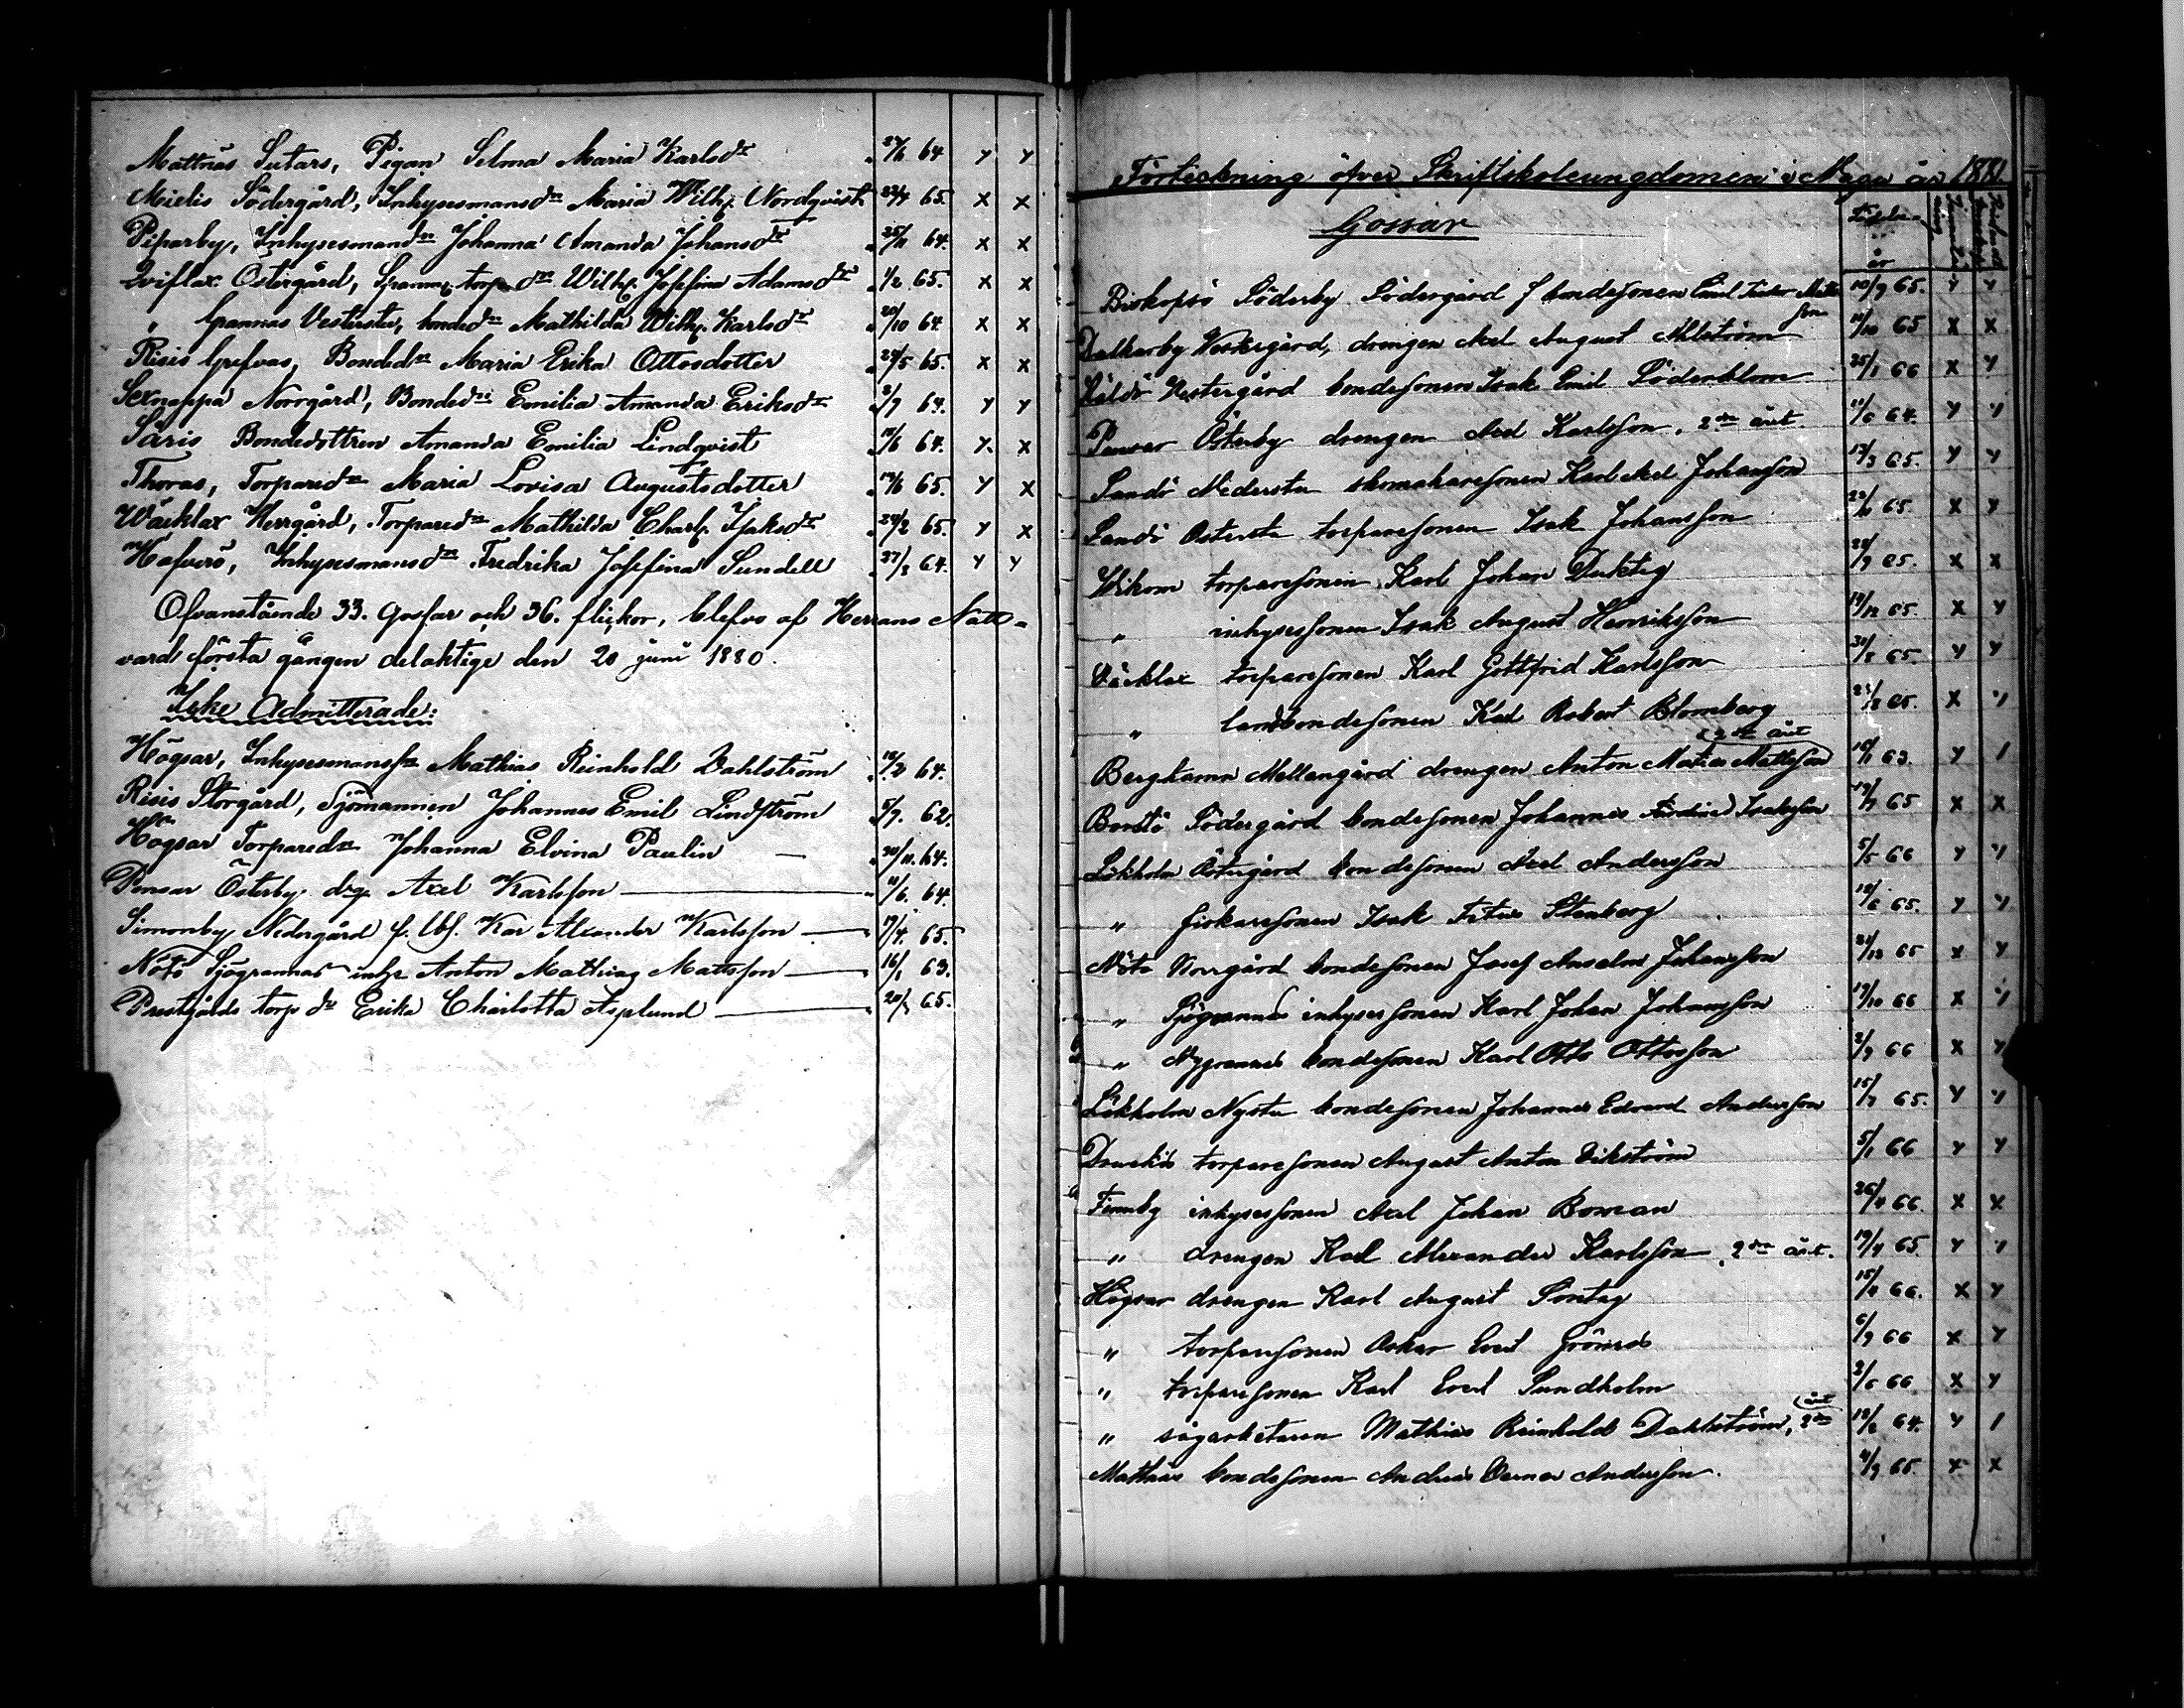 Mattnäs Sutars, Pigan Selma Maria Karlsdr 27/6 64 y y
Mielis Södergård, Inhysesmansdn Maria Wilh. Nordqvist 22/4 65. x x
Piparby, Inhysesmansdn Johanna Amanda Johansdr 25/11 64. x x
Qviflax Östergård, torpdn Wilh. Josefina Adamsdr 1/2 65. x x
" Grannas Vestersta, bondedn Mathilda Wilh. Karlsdr 20/10 64. x x
Risis Grefvas, Bondedn Maria Erika Ottosdotter 29/5 65. x x
Sexnappa Norrgård, Bondedn Emilia Amanda Eriksdr 2/9 64. y y
Säris Bondedottren Amanda Emilia Lindqvist 64. x x
Thoras, Torparedn Maria Lovisa Augustsdotter 19/6 65. y x
Wäcklax Herrgård, Torparedn Mathilda Charl. Isaksdr 24/2 65. y x
Hafverö, Inhysesmansdn Fredrika Josefina Sundell 27/3 64. y y
Ofvanstående 33. Gossar och 36. flickor, blefvo af Herrans Natt-
vard första gången delaktige den 20 juni 1880.
Icke Admitterade:
Högsar, Inhysesmanss Mathias Reinhold Dahlström 12/2 64.
Risis Storgård, Sjömannen Johannes Emil Lindström 5/9. 62.
Högsar Torparedn Johanna Elvina Paulin — 30/11. 64.
Pensar Österby drg. Axel Karlsson 11/6. 64.
Simonby Nedergård f. lbf. Kar Alexander Karlsson 19/4. 65.
Nötö Sjögrannas inhs Anton Mathias Mattsson 16/1 63.
Prestgårds torp dr Erika Charlotta Asplund 65.
Förteckning öfver Skriftskoleungdomen i Nagu år 1881
Gossar
år
Biskopsö Söderby Södergård f bondesonen Emil Matts 10/9 65. y y
son
Dalkarby Vestergård, drengen Axel August Ahlström 11/10 65 x x
Käldö Vestergård bondesonen Isak Emil Söderblom 25/1 66 x y
Pensar Österby drengen Axel Karlsson, 2dra året 11/6 64. y y
Sandö Nedersta skomakaresonen Karl Axel Johansson 17/3 65. y y
Sandö Östersta torparesonen Isak Johansson 65. x y
Wikom torparesonen Karl Johan Duktig 28/9 65. x x
" inhysessonen Isak August Henriksson 19/12 65. x y
Väcklax torparesonen Karl Gottfrid Karlsson 30/8 65. y y
" landbondesonen Karl Robert Blomberg 65. x y
2dra året
Berghamn Mellangård drengen Anton Matias Mattsson 16/1 63. y /
Borstö Södergård bondesonen Johannes Isaksson 19/7 65 x x
Lökholm Östergård bondesonen Axel Andersson 5/5 66 y y
" fiskaresonen Isak Stenberg 12/6 65. y y
Nötö Norrgård bondesonen Josef Anselm Johansson 21/12 65 x y
" Sjögrannas inhysessonen Karl Johan Johansson 19/10 66 x y
" Nygrannas bondesonen Karl Otto Ottosson 2/9 66 x y
Lökholm Nysta bondesonen Johannes Edvard Andersson 15/7 65. y y
Druckis torparesonen August Anton Vikström 5/1 66 y y
Finnby inhysessonen Axel Johan Boman 26/4 66 x x
" drengen Karl Alexander Karlsson 2dra året. 19/4 65 y y
Högsar drengen Karl August Sontag 66. x y
" torparesonen Oskar Evert Grönroos 6/9 66 x y
" torparesonen Karl Evert Sundholm 2/6 66 x y
året
" sågarbetaren Mathias Reinhold Dahlström, 2dra 12/2 64. y /
Mattnäs bondesonen Andreas Verner Andersson. 4/9 65 x x